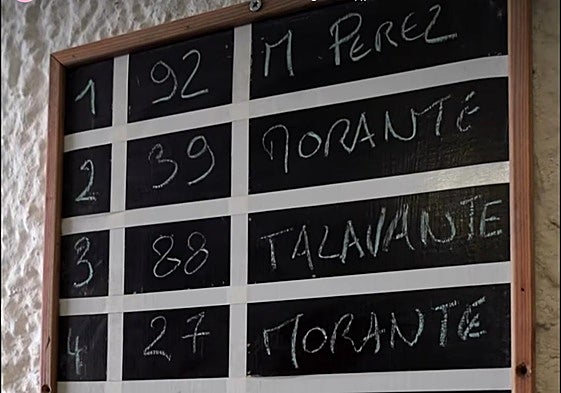 1 92 M PEREZ
2 39 MORANTÉ
3 88 TALAVANTE
4 27 MORANTE